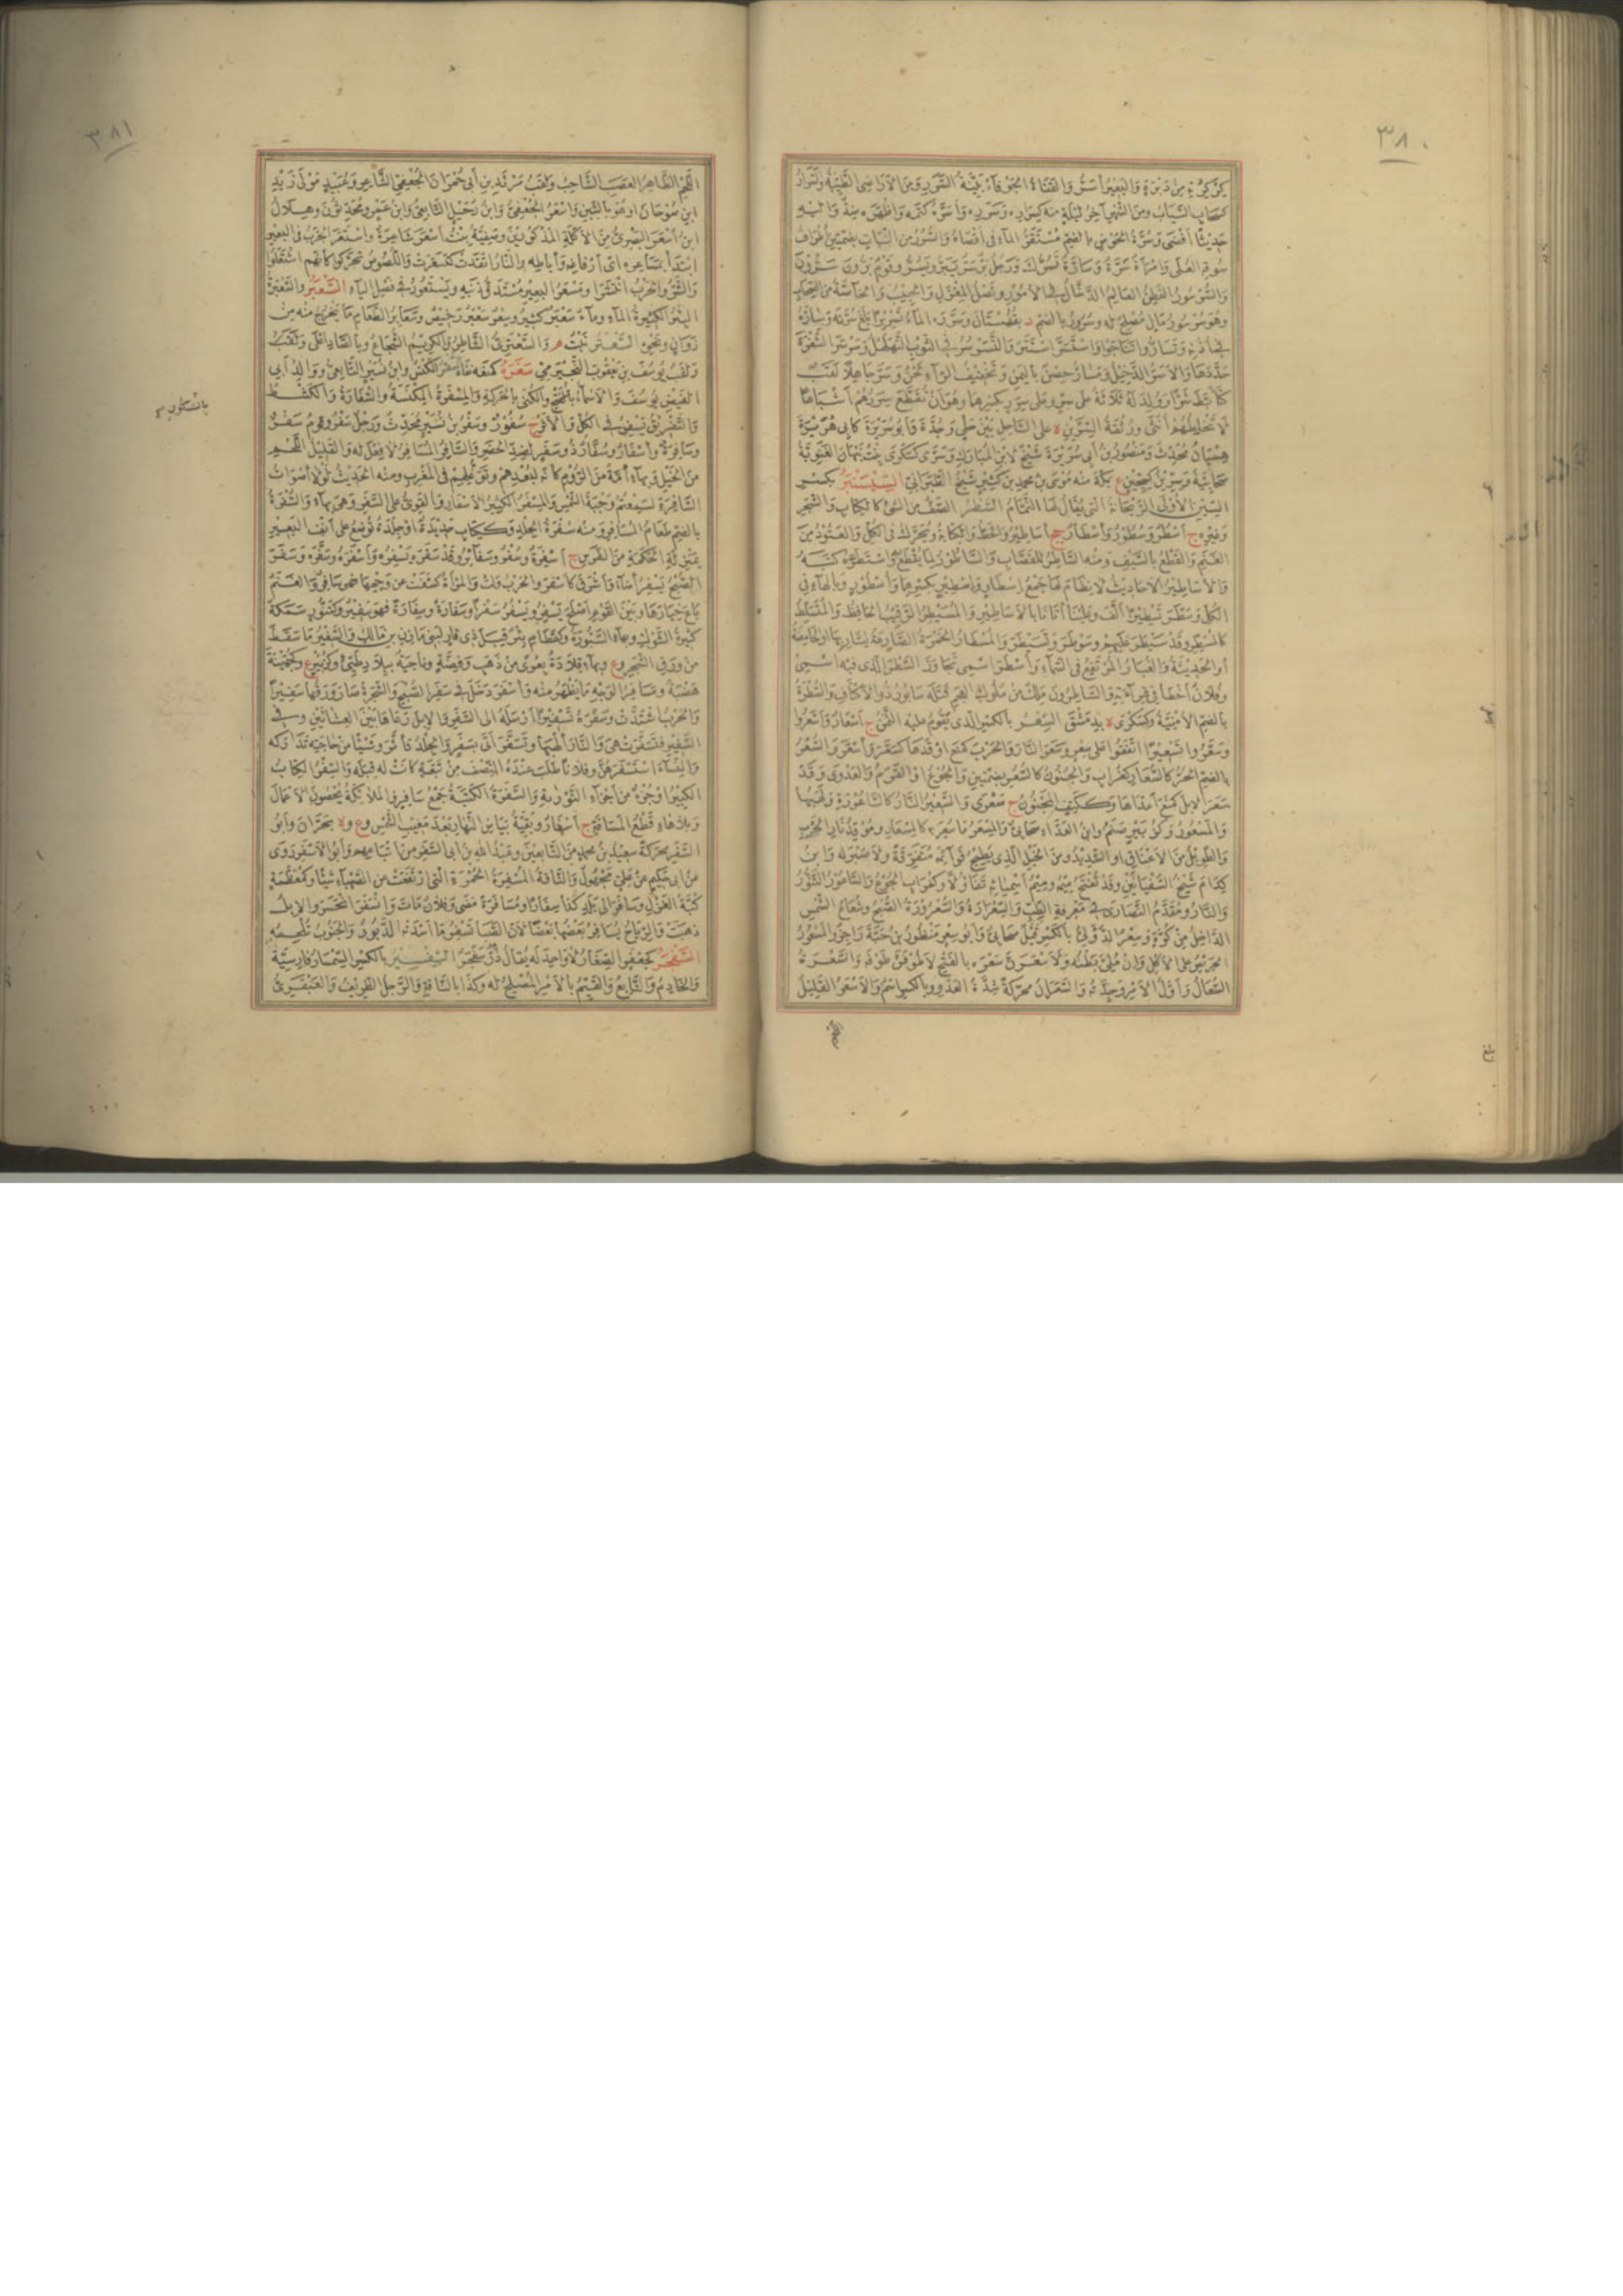 ٣٨٠
كِرْكِرَةٍ مِنْ دَبَرَةٍ وَالبَعِيرُ أَسَرُّ وَالقَنَاةُ الجَوْفَاءُ بَيِّنَةُ السَّرَرِ وَمِنَ الأَرَاضِى الطَّيِّبَةُ وَسَرَارُ
الشَّبَابُ ومِنَ الشَّهْرِ آخِرُ لَيْلَةٍ مِنْهُ كَسَرَارِهِ وَسَرَرِهِ وَأَسَرَّهُ كَتَمَهُ وَأَظْهَرَهُ ضِدٌّ وَالَيْهِ
حَدِيثًا أَفْضَى وَسُرَّةُ الحَوْضِ بالضم مُسْتَقَرُّ المَاءِ فى أَقْصَاهُ وَالسُّرُرُ مِنَ النَّبَاتِ بضمتين أَطْرَافُ
سُوقِهِ العُلَى وَامْرَأَةٌ سَرَّةٌ وَسَارَّةٌ تَسُرُّكَ وَرَجُلٌ بَرٌّ سَرٌّ يَبَرُّ وَيَسُرُّ وَقَوْمٌ بَرُّونَ سَرُّونَ
وَالسُّرْسُورُ الفَطِنُ العَالِمُ الدَّخَّالُ فى الأُمُورِ وَنَصْلُ المِغْزَلِ وَالحَبِيبُ وَالخَاصَّةُ مِنَ الصِّحَابِ
وهُوَ سُرْسُورُ مَالٍ مُصْلِحٌ لَهُ وَسُرُورُ بالضم د بقُهُسْتَانَ وَسَرَّرَهُ المَاءُ تَسْرِيرًا بَلَغَ سُرَّتَهُ وَسَارَّهُ
فى أُذُنِهِ وَتَسَارُّوا تَنَاجَوْا وَاسْتَسَرَّ اسْتَتَرَ وَالتَّسَرْسُرُ فى الثَّوْبِ التَّهَلْهُلُ وَسَرْسَرَ الشَّفْرَةَ
حَدَّدَهَا وَالأَسَرُّ الدَّخِيلُ وَمَسَارُّ حِصْنٌ بِاليَمَنِ وَتَخْفِيفُ الرَّاءِ لَحْنٌ وَسَرَّ جَاهِلًا لَقَبُ
كَتَأَبَّطَ شَرًّا وَوُلِدَ لَهُ ثَلَاثَةٌ عَلَى سِرٍّ وَعَلَى سِرَرٍ بكسرهما وَهُوَ أَنْ تُقْطَعَ سِرَرُهُمْ أَشْبَاهًا
لَا تَخْلِطُهُمْ أُنْثَى وَرُتْقَةُ السِّرَّيْنِ ة عَلَى السَّاحِلِ بَيْنَ حَلْيٍ وَجُدَّةَ وَأَبُو سُرَيْرَةَ كَأَبِى هُرَيْرَةَ
هِمْيَانٌ مُحَدِّثٌ وَمَنْصُورُ بْنُ أَبِى سُرَيْرَةَ شَيْخٌ لِابْنِ المُبَارَكِ وَسَرَّى كَسَكْرَى بِنْتُ نَبْهَانَ الغَنَوِيَّةُ
صَحَابِيَّةٌ وَسِرِّينُ كَسِجِّينٍ ع بمَكَّةَ مِنْهُ مُوسَى بْنُ مُحَمَّدِ بْنِ كَثِيرٍ شَيْخُ الطَّبَرَانِيِّ السِّيسَنْبَرُ بِكَسْرِ
السِّينِ الأُولَى الرَّيْحَانَةُ الَّتِى يُقَالُ لَهَا النَّمَّامُ السَّطْرُ الصَّفُّ مِنَ الشَّىْءِ كَالكِتَابِ وَالشَّجَرِ
وَغَيْرِهِ ج أَسْطُرٌ وَسُطُورٌ وَأَسْطَارٌ جج أَسَاطِيرُ وَالخَطُّ وَالكِتَابَةُ وَيُحَرَّكُ فِى الكُلِّ وَالعَتُودُ مِنَ
الغَنَمِ وَالقَطْعُ بِالسَّيْفِ وَمِنْهُ السَّاطِرُ لِلْقَصَّابِ وَالسَّاطُورُ لِمَا يُقْطَعُ بِهِ وَاسْتَطَرَهُ كَتَبَهُ
وَالأَسَاطِيرُ الأَحَادِيثُ لَا نِظَامَ لَهَا جَمْعُ إِسْطَارٍ وَإِسْطِيرٍ بِكَسْرِهِمَا وَأُسْطُورٍ وَبِالهَاءِ فِى
الكُلِّ وَسَطَّرَ تَسْطِيرًا أَلَّفَ وَعَلَيْنَا أَتَانَا بِالأَسَاطِيرِ وَالمُسَيْطِرُ الرَّقِيبُ الحَافِظُ وَالمُتَسَلِّطُ
كَالمُسَطِّرِ وَقَدْ سَيْطَرَ عَلَيْهِمْ وَسَوْطَرَ وَتَسَيْطَرَ وَالمُسْطَارُ الخَمْرَةُ الصَّارِعَةُ لِشَارِبِهَا أَوِ الحَامِضَةُ
أَوِ الحَدِيثَةُ وَالغُبَارُ المُرْتَفِعُ فِى السَّمَاءِ وَأَسْطَرَ اسْمِى تَجَاوَزَ السَّطْرَ الَّذِى فِيهِ اسْمِى
وَفُلَانٌ أَخْطَأَ فِى قِرَاءَتِهِ وَالسَّاطِرُونَ مَلِكٌ مِنْ مُلُوكِ العَجَمِ قَتَلَهُ سَابُورُ ذُو الأَكْتَافِ وَالسُّطْرَةُ
بِالضَّمِّ الأُمْنِيَّةُ وَكَسَكْرَى ة بِدِمَشْقَ السِّعْرُ بِالكَسْرِ الَّذِى يَقُومُ عَلَيْهِ الثَّمَنُ ج أَسْعَارٌ وَأَسْعَرُوا
وَسَعَّرُوا تَسْعِيرًا اتَّفَقُوا عَلَى سِعْرٍ وَسَعَرَ النَّارَ وَالحَرْبَ كَمَنَعَ أَوْقَدَهَا كَسَعَّرَ وَأَسْعَرَ وَالسُّعْرُ
بِالضَّمِّ الحَرُّ كَالسُّعَارِ كَغُرَابٍ وَالجُنُونُ كَالسُّعُرِ بِضَمَّتَيْنِ وَالجُوعُ أَوِ القَرَمُ وَالعَدْوَى وَقَدْ
سَعَرَ الإِبِلَ كَمَنَعَ أَعْدَاهَا وَكَكَتِفٍ المَجْنُونُ ج سَعْرَى وَالسَّعِيرُ النَّارُ كَالسَّاعُورَةِ وَلَهَبُهَا
وَالمَسْعُورُ وَكَزُبَيْرٍ صَنَمٌ وَابْنُ العَدَّاءِ صَحَابِىٌّ وَالمِسْعَرُ مَا سُعِرَ بِهِ كَالمِسْعَارِ وَمُوقِدُ نَارِ الحَرْبِ
وَالطَّوِيلُ مِنَ الأَعْنَاقِ أَوِ الشَّدِيدُ وَمِنَ الخَيْلِ الَّذِى يُطِيحُ قَوَائِمَهُ مُتَفَرِّقَةً وَلَا ضَبْرَ لَهُ وَابْنُ
كِدَامٍ شَيْخُ السُّفْيَانَيْنِ وَقَدْ تُفْتَحُ مِيمُهُ وَمِيمُ أَسْمِيَائِهِ تَفَاؤُلًا وَكَغُرَابٍ الجُوعُ وَالسَّاعُورُ التَّنُّورُ
وَالنَّارُ وَمُقَدَّمُ النَّصَارَى فِى مَعْرِفَةِ الطِّبِّ وَالسِّعْرَارَةُ وَالسُّعْرُورَةُ الصُّبْحُ وَشُعَاعُ الشَّمْسِ
الدَّاخِلُ مِنْ كُوَّةٍ وَسِعْرُ الدُّؤَلِىُّ بِالكَسْرِ قِيلَ صَحَابِىٌّ وَأَبُو سِعْرٍ مَنْظُورُ بْنُ حَبَّةَ رَاجِزٌ وَالمَسْعُورُ
الحَرِيصُ عَلَى الأَكْلِ وَإِنْ مُلِئَ بَطْنُهُ وَلَأَسْعَرَنَّ سَعْرَهُ بِالفَتْحِ لَأَطُوفَنَّ طَوْفَهُ وَالسَّعْرَةُ
السُّعَالُ وَأَوَّلُ الأَمْرِ وَجِدَّتُهُ وَالسَّعَرَانُ مُحَرَّكَةً شِدَّةُ العَدْوِ وَبِالكَسْرِ اسْمٌ وَالأَسْعَرُ القَلِيلُ
بلغ
٣٨١
اللَّحْمِ الظَّاهِرُ العَصَبِ الشَّاحِبُ وَلَقَبُ مَرْثَدِ بْنِ أَبِى حُمْرَانَ الجُعْفِىِّ الشَّاعِرِ وَعُبَيْدٍ مَوْلَى زَيْدِ
ابْنِ صُوحَانَ أَوْ هُوَ بِالشِّينِ وَأَسْعَرُ الجُعْفِىُّ وَابْنُ رُحَيْلٍ التَّابِعِىُّ وَابْنُ عَمْرٍو مُحَدِّثُونَ وَهِلَالُ
ابْنُ أَسْعَرَ البَصْرِىُّ مِنَ الأَكَلَةِ المَذْكُورِينَ وَصَفِيَّةُ بِنْتُ أَسْعَرَ شَاعِرَةٌ وَاسْتَعَرَ الجَرَبُ فِى البَعِيرِ
ابْتَدَأَ بِمَسَاعِرِهِ أَىْ أَرْفَاغِهِ وَآبَاطِهِ وَالنَّارُ اتَّقَدَتْ كَتَسَعَّرَتْ وَاللُّصُوصُ تَحَرَّكُوا كَأَنَّهُمُ اشْتَعَلُوا
وَالشَّرُّ وَالحَرْبُ انْتَشَرَا وَمَسْعَرُ البَعِيرِ مُسْتَدَقُّ ذَنَبِهِ وَيَسْتَعُورُ فِى فَصْلِ اليَاءِ السَّعْبَرُ وَالسَّعْبَرَةُ
البِئْرُ الكَثِيرَةُ المَاءِ وَمَاءٌ سَعْبَرٌ كَثِيرٌ وَسِعْرٌ سَعْبَرٌ رَخِيصٌ وَسَعَابِرُ الطَّعَامِ مَا يُخْرَجُ مِنْهُ مِنْ
زُوَانٍ وَنَحْوِهِ السَّعْتَرُ نَبْتٌ م وَالسَّعْتَرِىُّ الشَّاطِرُ وَالكَرِيمُ الشُّجَاعُ وَبِالصَّادِ أَعْلَى وَلَقَبُ
وَلَقَبُ يُوسُفَ بْنِ يَعْقُوبَ النَّجِيرَمِىِّ سَغَرَهُ كَمَنَعَهُ نَفَاهُ السَّفْرُ الكَنْسُ وَابْنُ نُسَيْرٍ التَّابِعِىُّ وَوَالِدُ أَبِى
الفَيْضِ يُوسُفَ وَالأَسْمَاءُ بِالفَتْحِ وَالكُنَى بِالحَرَكَةِ وَالمِسْفَرَةُ المِكْنَسَةُ وَالسُّفَارَةُ وَالكَشْطُ
بالسكون
وَالتَّفْرِيقُ يَسْفِرُ فِى الكُلِّ وَالأَثَرُ ج سُفُورٌ وَسَفْرُ بْنُ نُسَيْرٍ مُحَدِّثٌ وَرَجُلٌ سَفْرٌ وَقَوْمٌ سَفْرٌ
وَسَافِرَةٌ وَأَسْفَارٌ وَسُفَّارٌ ذُو سَفَرٍ لِضِدِّ الحَضَرِ وَالسَّافِرُ المُسَافِرُ لَا فِعْلَ لَهُ وَالقَلِيلُ اللَّحْمِ
مِنَ الخَيْلِ وَبِهَاءٍ أُمَّةٌ مِنَ الرُّومِ كَأَنَّهُ لِبُعْدِهِمْ وَتَوَغُّلِهِمْ فِى المَغْرِبِ وَمِنْهُ الحَدِيثُ لَوْلَا أَصْوَاتُ
السَّافِرَةِ لَسَمِعْتُمْ وَجْبَةَ الشَّمْسِ وَالمِسْفَرُ الكَثِيرُ الأَسْفَارِ وَالقَوِىُّ عَلَى السَّفَرِ وَهِىَ بِهَاءٍ وَالسُّفْرَةُ
بِالضَّمِّ طَعَامُ المُسَافِرِ وَمِنْهُ سُفْرَةُ الجِلْدِ وَكَكِتَابٍ حَدِيدَةٌ أَوْ جِلْدَةٌ تُوضَعُ عَلَى أَنْفِ البَعِيرِ
بِمَنْزِلَةِ الحَكَمَةِ مِنَ الفَرَسِ ج أَسْفِرَةٌ وَسُفُرٌ وَسَفَائِرُ وَقَدْ سَفَرَهُ يَسْفِرُهُ وَأَسْفَرَهُ وَسَفَّرَهُ وَسَفَرَ
الصُّبْحُ يَسْفِرُ أَضَاءَ وَأَشْرَقَ كَأَسْفَرَ وَالحَرْبُ وَلَّتْ وَالمَرْأَةُ كَشَفَتْ عَنْ وَجْهِهَا فَهِىَ سَافِرٌ وَالغَنَمَ
بَاعَ خِيَارَهَا وَبَيْنَ القَوْمِ أَصْلَحَ يَسْفِرُ وَيَسْفُرُ سَفْرًا وَسَفَارَةً وَسِفَارَةً فَهُوَ سَفِيرٌ وَكَتَنُّورٍ سَمَكَةٌ
كَثِيرَةُ الشَّوْكِ وَبِهَاءٍ السَّبُّورَةُ وَكَقَطَامِ بِئْرٌ قِبَلَ ذِى قَارٍ لِبَنِى مَازِنِ بْنِ مَالِكٍ وَالسَّفِيرُ مَا سَقَطَ
مِنْ وَرَقِ الشَّجَرِ وَع وَبِهَاءٍ قِلَادَةٌ بِعُرًى مِنْ ذَهَبٍ وَفِضَّةٍ وَنَاحِيَةٌ بِبِلَادِ طَيِّئٍ وَكَزُبَيْرٍ ع وَكَجُهَيْنَةَ
هَضْبَةٌ وَمَسَافِرُ الوَجْهِ مَا يَظْهَرُ مِنْهُ وَأَسْفَرَ دَخَلَ فِى سَفَرِ الصُّبْحِ وَالشَّجَرَةُ صَارَ وَرَقُهَا سَفِيرًا
وَالحَرْبُ اشْتَدَّتْ وَسَفَّرَهُ تَسْفِيرًا أَرْسَلَهُ إِلَى السَّفَرِ وَالإِبِلَ رَعَاهَا بَيْنَ العِشَاءَيْنِ وَفِى
السَّفِيرِ فَتَسَفَّرَتْ هِىَ وَالنَّارَ أَلْهَبَهَا وَتَسَفَّرَ أَتَى بِسَفَرٍ وَالجِلْدُ تَأَثَّرَ وَشَيْئًا مِنْ حَاجَتِهِ تَدَارَكَهُ
وَالنِّسَاءَ اسْتَسْفَرَهُنَّ وَفُلَانًا طَلَبَ عِنْدَهُ النِّصْفَ مِنْ تَبِعَةٍ كَانَتْ لَهُ قِبَلَهُ وَالسِّفْرُ الكِتَابُ
الكَبِيرُ أَوْ جُزْءٌ مِنْ أَجْزَاءِ التَّوْرَاةِ وَالسَّفَرَةُ الكَتَبَةُ جَمْعُ سَافِرٍ وَالمَلَائِكَةُ يُحْصُونَ الأَعْمَالَ
وَبِلَا هَاءٍ قَطْعُ المَسَافَةِ ج أَسْفَارٌ وَبَقِيَّةُ بَيَاضِ النَّهَارِ بَعْدَ مَغِيبِ الشَّمْسِ وَع وَة بِحَرَّانَ وَأَبُو
السَّفَرِ مُحَرَّكَةً سَعِيدُ بْنُ مُحَمَّدٍ مِنَ التَّابِعِينَ وَعَبْدُ اللهِ بْنُ أَبِى السَّفَرِ مِنْ أَتْبَاعِهِمْ وَأَبُو الأَسْفَرِ رَوَى
عَنِ ابْنِ حَكِيمٍ عَنْ عَلِىٍّ مَجْهُولٌ وَالنَّاقَةُ المُسْفِرَةُ الحُمْرَةِ الَّتِى ارْتَفَعَتْ عَنِ الصَّهْبَاءِ شَيْئًا وَكَمُعَظَّمَةٍ
كُبَّةُ الغَزْلِ وَسَافَرَ إِلَى بَلَدِ كَذَا سِفَارًا وَمُسَافَرَةً مَضَى وَفُلَانٌ مَاتَ وَانْسَفَرَ انْحَسَرَ وَالإِبِلُ
ذَهَبَتْ وَالرِّيَاحُ يُسَافِرُ بَعْضُهَا بَعْضًا لِأَنَّ الصَّبَا تَسْفِرُ مَا أَسْدَتْهُ الدَّبُورُ وَالجَنُوبُ تُلْحِمُهُ
السَّفْجَرُ كَجَعْفَرٍ الصِّغَارُ لَا وَاحِدَ لَهُ يُقَالُ ذَرٌّ سَفْجَرٌ السِّفْسِيرُ بِالكَسْرِ السِّمْسَارُ فَارِسِيَّةٌ
وَالخَادِمُ وَالتَّابِعُ وَالقَيِّمُ بِالأَمْرِ المُصْلِحُ لَهُ وَكَذَا بِالنَّاقَةِ وَالرَّجُلُ الظَّرِيفُ وَالعَبْقَرِىُّ